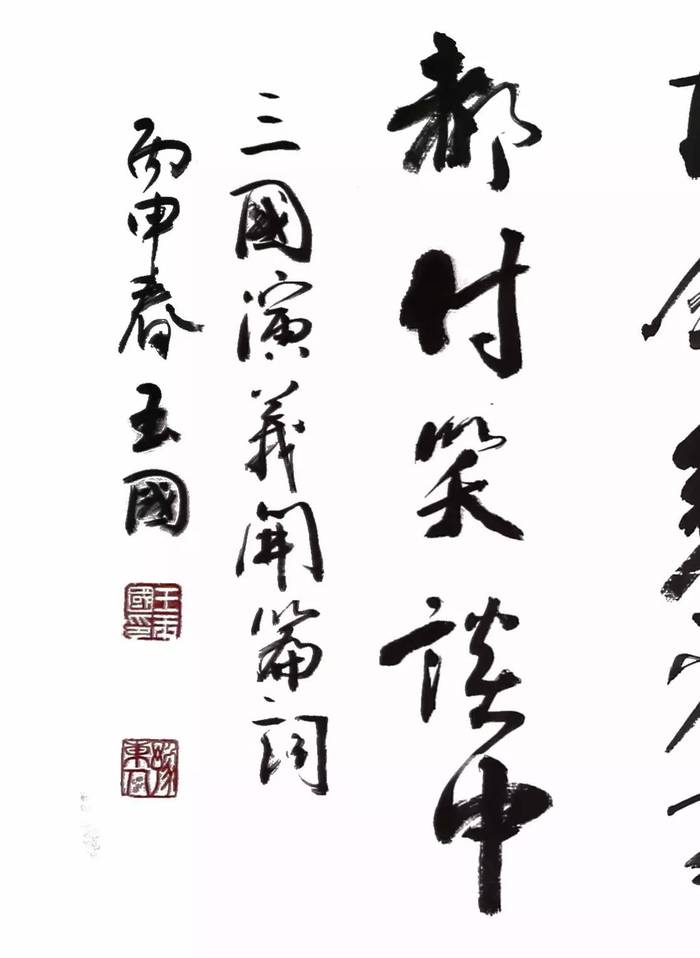 都付笑談中
三國演義開篇詞
丙申春玉國